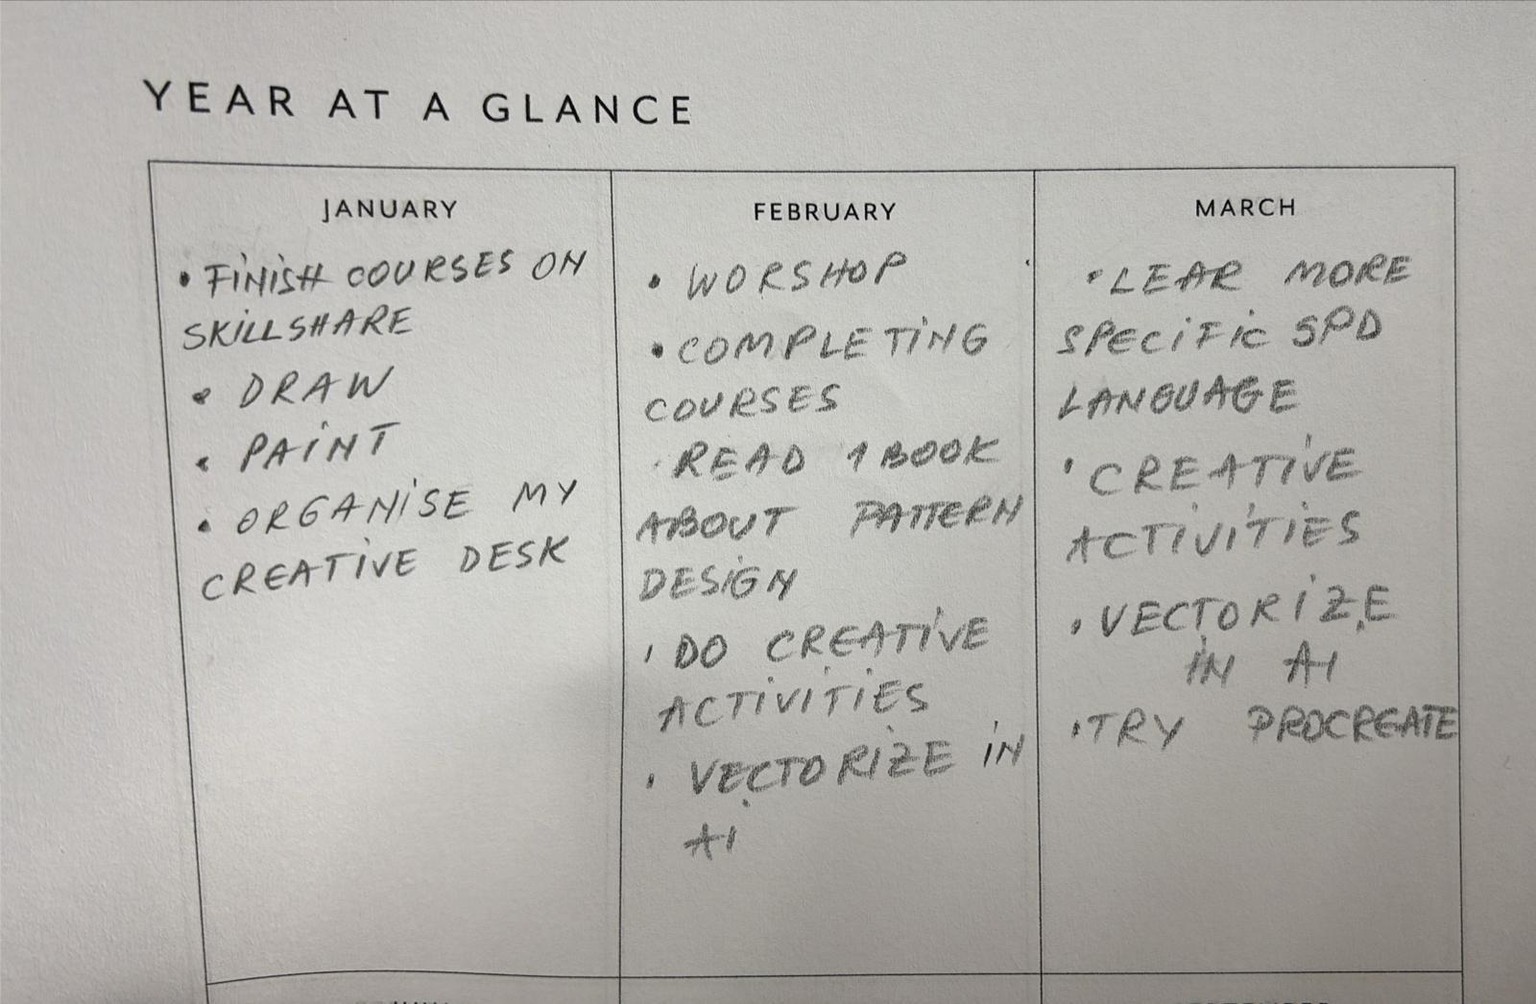 YEAR AT A GLANCE
JANUARY
• FINISH COURSES ON
SKILLSHARE
• DRAW
• PAINT
• ORGANISE MY
CREATIVE DESK
FEBRUARY
• WORSHOP
• COMPLETING
COURSES
• READ 1 BOOK
ABOUT PATTERN
DESIGN
• DO CREATIVE
ACTIVITIES
• VECTORIZE IN
AI
MARCH
• LEAR MORE
SPECIFIC SPD
LANGUAGE
• CREATIVE
ACTIVITIES
• VECTORIZE
IN AI
• TRY PROCREATE